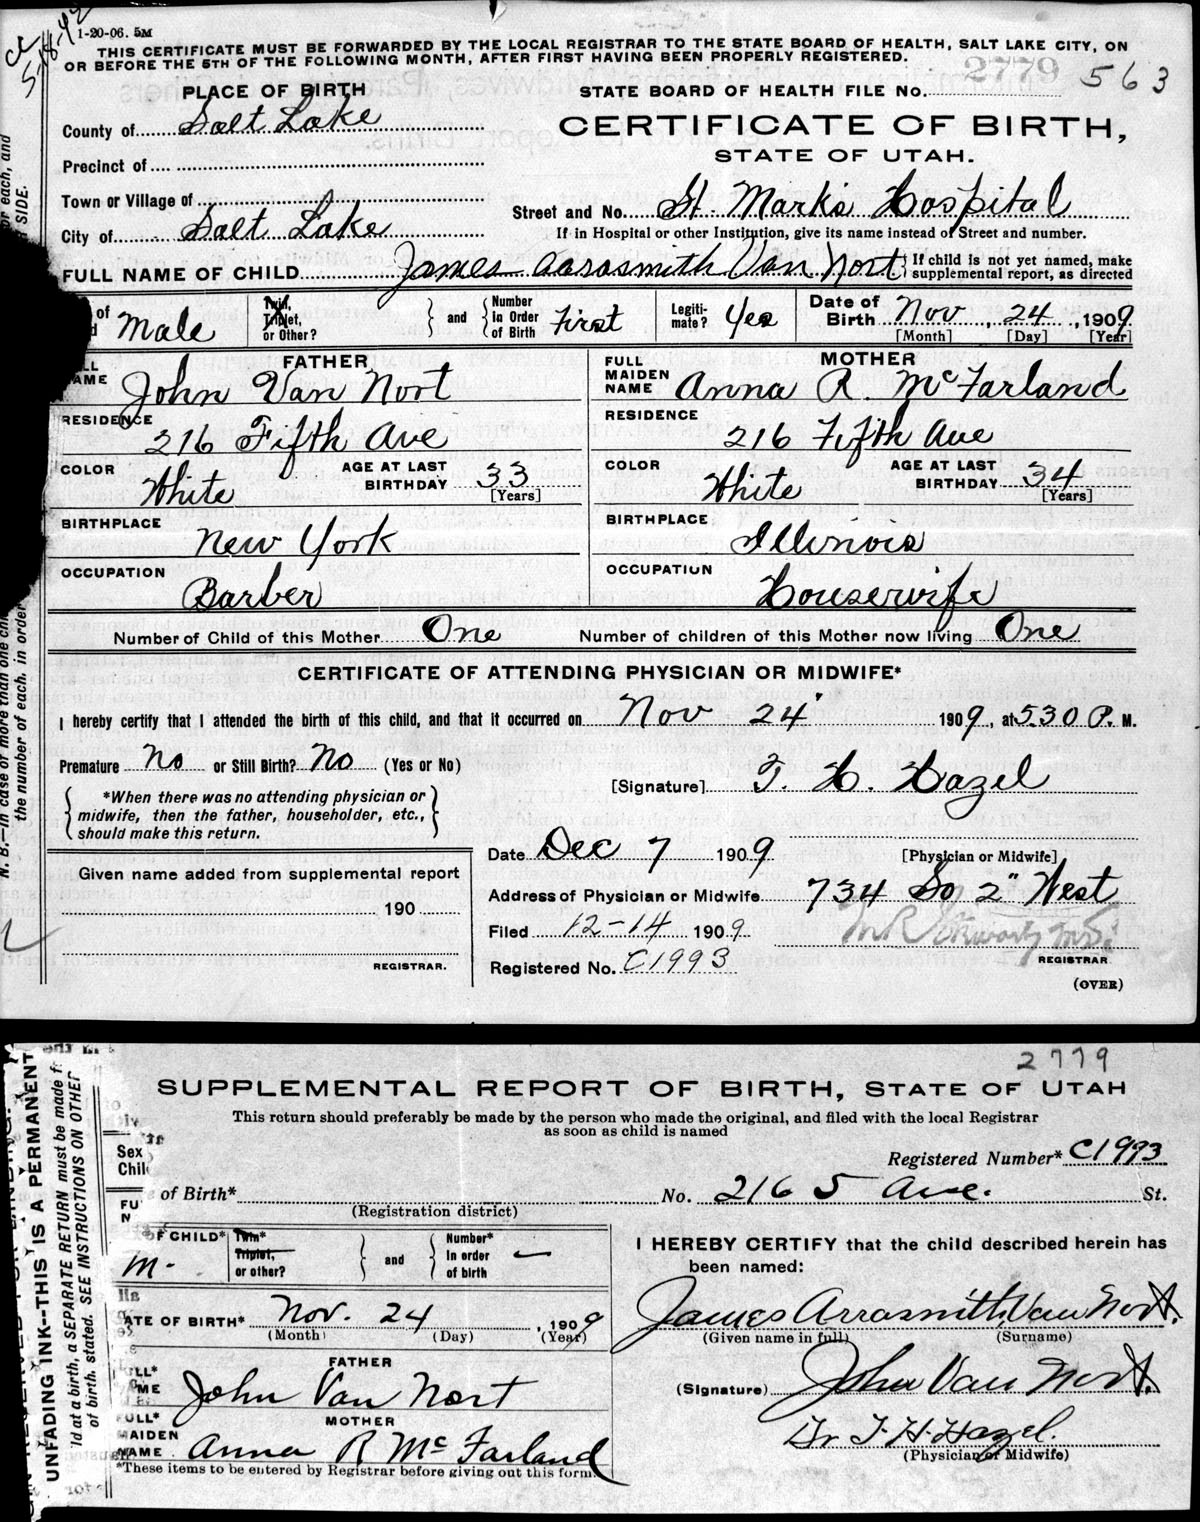 1-20-06. 5M
THIS CERTIFICATE MUST BE FORWARDED BY THE LOCAL REGISTRAR TO THE STATE BOARD OF HEALTH, SALT LAKE CITY, ON
OR BEFORE THE 5TH OF THE FOLLOWING MONTH, AFTER FIRST HAVING BEEN PROPERLY REGISTERED.
2779 563
PLACE OF BIRTH
STATE BOARD OF HEALTH FILE No.
County of Salt Lake
CERTIFICATE OF BIRTH,
STATE OF UTAH.
Precinct of
Town or Village of
Street and No. St. Mark's Hospital
City of Salt Lake
If in Hospital or other Institution, give its name instead of Street and number.
FULL NAME OF CHILD James Aarosmith Van Nort
If child is not yet named, make
supplemental report, as directed
of Male
Twin,
Triplet,
or Other?
and
Number
In Order
of Birth First
Legiti-
mate? Yes
Date of
Birth Nov, 24, 1909.
[Month] [Day] [Year]
FATHER
NAME John Van Nort
RESIDENCE
216 Fifth Ave
COLOR White
AGE AT LAST
BIRTHDAY 33
[Years]
BIRTHPLACE
New York
OCCUPATION
Barber
MOTHER
FULL
MAIDEN
NAME Anna R. McFarland
RESIDENCE
216 Fifth Ave
COLOR White
AGE AT LAST
BIRTHDAY 34
[Years]
BIRTHPLACE
Illinois
OCCUPATION
Housewife
Number of Child of this Mother One Number of children of this Mother now living One
CERTIFICATE OF ATTENDING PHYSICIAN OR MIDWIFE*
I hereby certify that I attended the birth of this child, and that it occurred on Nov 24 1909, at 5.30 P. M.
Premature No or Still Birth? No (Yes or No)
[Signature] T. H. Hazel
*When there was no attending physician or
midwife, then the father, householder, etc.,
should make this return.
Date Dec 7 1909
[Physician or Midwife]
Given name added from supplemental report
190
REGISTRAR.
Address of Physician or Midwife 734 So 2" West
Filed 12-14 1909.
REGISTRAR
Registered No. C1993
(OVER)
N. B.—In case of more than one chi
the number of each, in order
or each, and
R SIDE.
2779
SUPPLEMENTAL REPORT OF BIRTH, STATE OF UTAH
This return should preferably be made by the person who made the original, and filed with the local Registrar
as soon as child is named
Registered Number* C1993
of Birth* No. 216 5 Ave. St.
(Registration district)
Sex
Chil
FU
N
OF CHILD*
M-
Twin*
Triplet,
or other?
and
Number*
In order
of birth —
ATE OF BIRTH* Nov. 24, 1909
(Month) (Day) (Year)
FATHER
John Van Nort
MOTHER
MAIDEN
NAME Anna R McFarland
*These items to be entered by Registrar before giving out this form.
I HEREBY CERTIFY that the child described herein has
been named:
James Arrasmith Van Nort.
(Given name in full) (Surname)
(Signature) John Van Nort.
Dr T. H. Hazel.
(Physician or Midwife)
UNFADING INK--THIS IS A PERMANENT
ld at a birth, a SEPARATE RETURN must be made f
of birth, stated. SEE INSTRUCTIONS ON OTHER